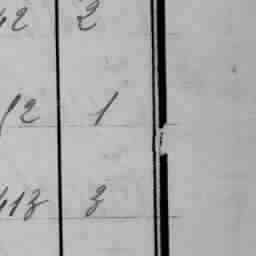 42 2
12 1
413 3